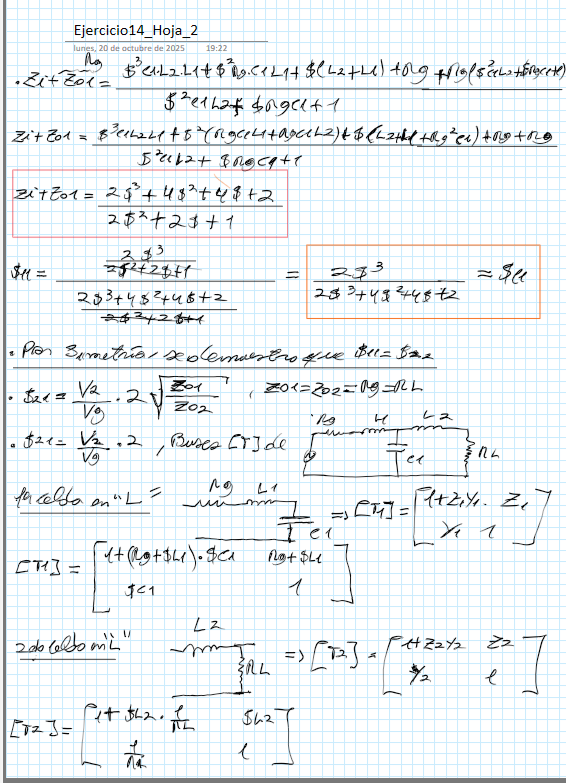 Ejercicio14_Hoja_2
lunes, 20 de octubre de 2025 19:22
Rg
· Zi+Zo1 = $³C1L2.L1+$²Rg.C1L1+$(L2+L1)+Rg+Rg($²C1L2+$RgC1+1) / $²C1L2+$RgC1+1
Zi+Zo1 = $³C1L2L1+$²(RgC1L1+RgC1L2)+$(L2+L1+Rg²C1)+Rg+Rg / $²C1L2+$RgC1+1
Zi+Zo1 = 2$³+4$²+4$+2 / 2$²+2$+1
$11 = (2$³ / 2$²+2$+1) / (2$³+4$²+4$+2 / 2$²+2$+1) = 2$³ / 2$³+4$²+4$+2 ≈ $11
· Por Simetría, se demuestro que $11=$22
· $21 = V2/Vg · 2 √(Zo1/Zo2) , Zo1=Zo2=Rg=RL
· $21 = V2/Vg · 2 , Busco [T] de
Rg L1 L2 C1 RL
1ª celda en "L" = Rg L1 C1 => [T1] = [1+Z1Y1. Z1
Y1 1]
[T1] = [1+(Rg+$L1).$C1 Rg+$L1
$C1 1]
2da celda en "L" L2 RL => [T2] = [1+Z2Y2 Z2
Y2 1]
[T2] = [1+$L2.1/RL $L2
1/RL 1]